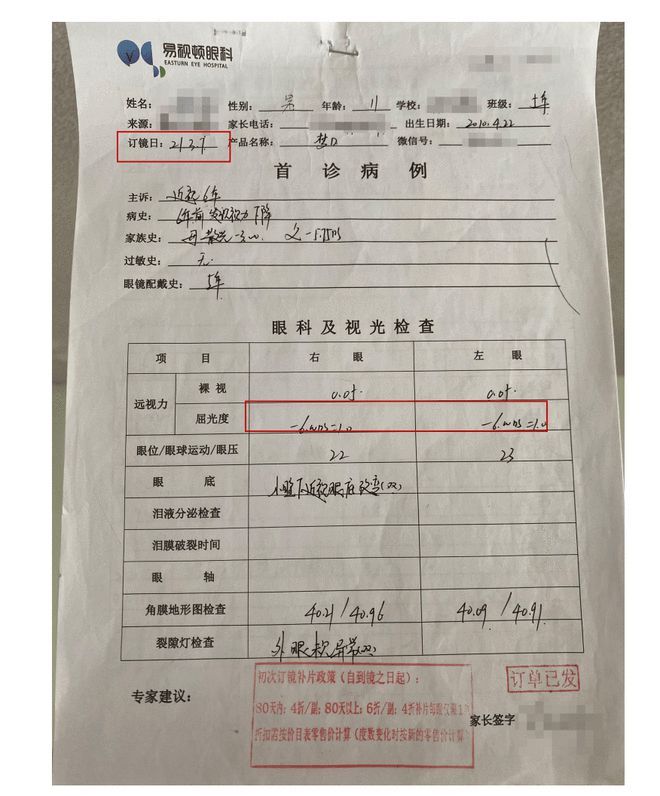 易视顿眼科
EASTURN EYE HOSPITAL
姓名: 性别: 男 年龄: 11 学校: 班级: 五年
来源: 家长电话: 出生日期: 2010.4.22
订镜日: 21.3.7 产品名称: 梦 微信号:
首 诊 病 例
主诉: 近视6年
病史: 6年前发现视力下降
家族史: 母 散光-3.00 父-5.75DS
过敏史: 无.
眼镜配戴史: 5年
眼科及视光检查
项 目 右 眼 左 眼
远视力 裸视 0.05. 0.05.
屈光度 -6.00DS=1.0 -6.00DS=1.0
眼位/眼球运动/眼压 22 23
眼 底 小瞳下近视眼底改变(双)
泪液分泌检查
泪膜破裂时间
眼 轴
角膜地形图检查 40.21/40.96 40.09/40.91
裂隙灯检查 外眼未见异常(双)
初次订镜补片政策(自到镜之日起):
80天内: 4折/副; 80天以上: 6折/副; 4折补片每眼仅限1
折扣需按价目表零售价计算(度数变化时按新的零售价计算
订单已发
专家建议:
家长签字